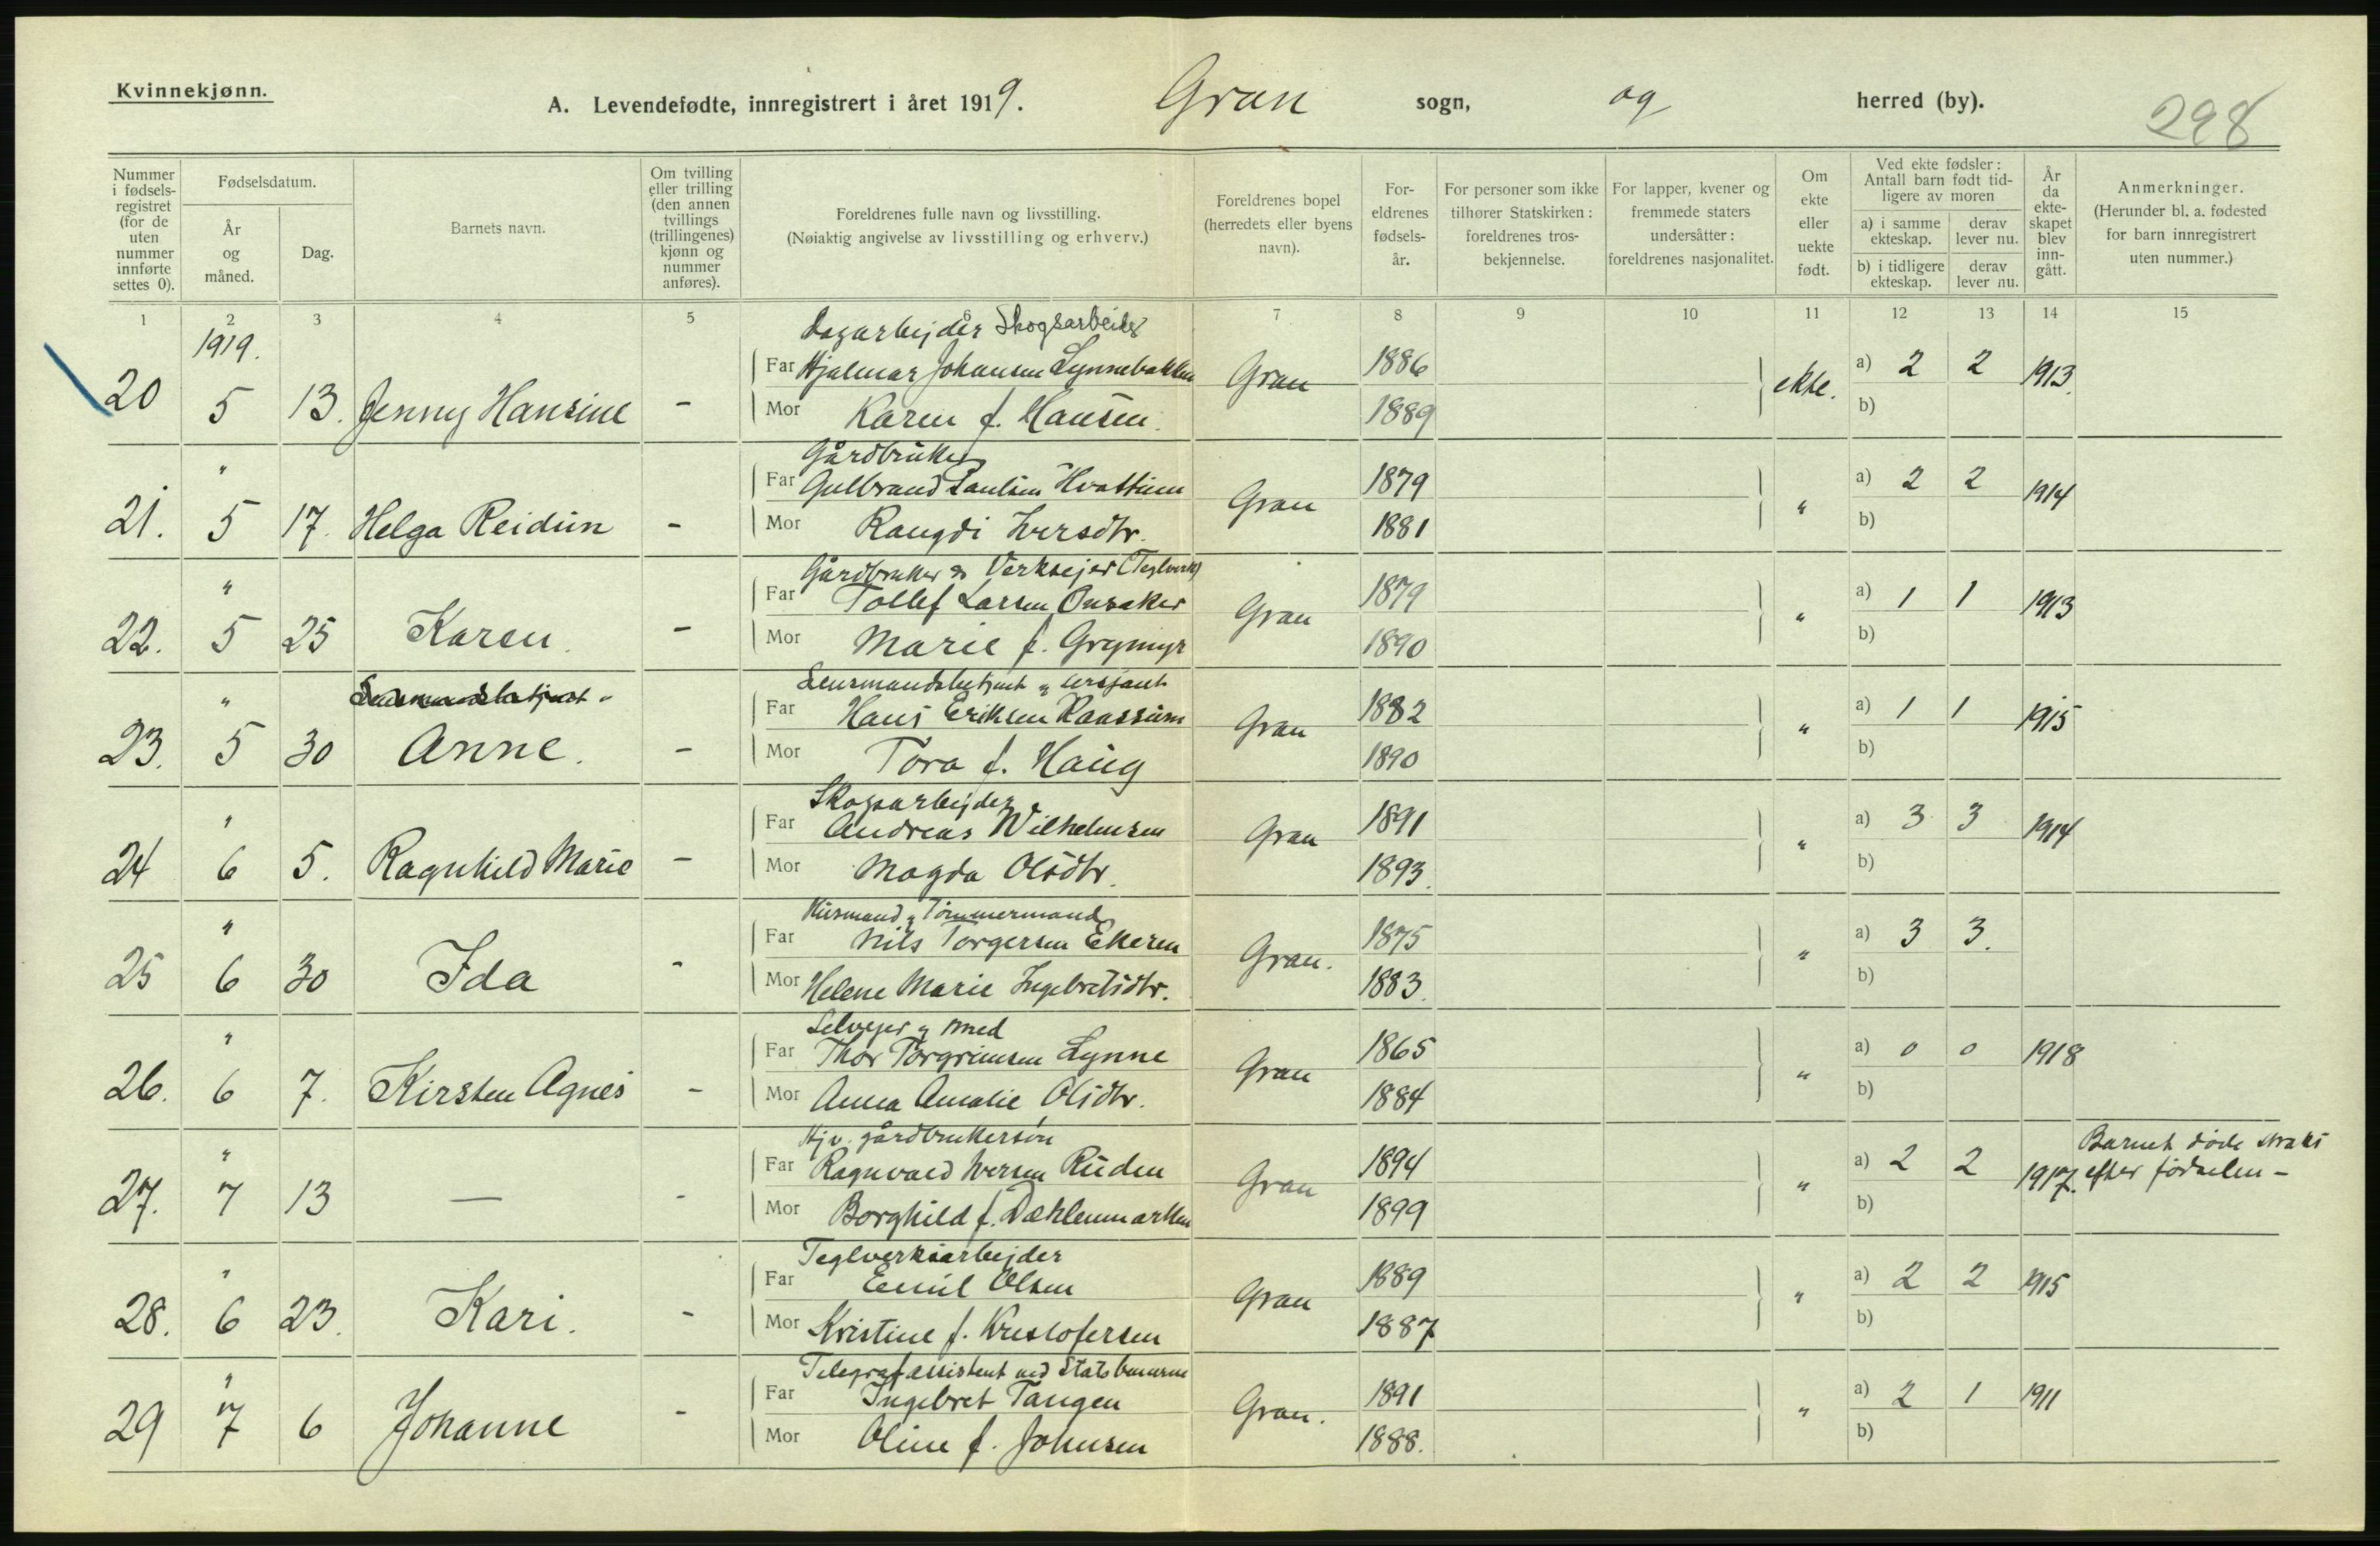 Kvinnekjønn.
A. Levendefødte, innregistrert i året 1919. Gran sogn, og herred (by). 298
Nummer i fødsels-registret (for de uten nummer innførte settes 0).
Fødselsdatum.
År og måned.
Dag.
Barnets navn.
Om tvilling eller trilling (den annen tvillings (trillingenes) kjønn og nummer anføres).
Foreldrenes fulle navn og livsstilling.
(Nøiaktig angivelse av livsstilling og erhverv.)
Foreldrenes bopel (herredets eller byens navn).
For-eldrenes fødsels-år.
For personer som ikke tilhører Statskirken: foreldrenes tros-bekjennelse.
For lapper, kvener og fremmede staters undersåtter: foreldrenes nasjonalitet.
Om ekte eller uekte født.
Ved ekte fødsler: Antall barn født tid-ligere av moren
a) i samme ekteskap.
derav lever nu.
b) i tidligere ekteskap.
derav lever nu.
År da ekte-skapet blev inn-gått.
Anmerkninger.
(Herunder bl. a. fødested for barn innregistrert uten nummer.)
1 2 3 4 5 7 8 9 10 11 12 13 14 15
1919.
Dagarbejder Skogsarbeider
20 5 13. Jenny Hansine - Far Hjalmar Johansen Lynnebakken Gran 1886 ekte. a) 2 2 1913.
Mor Karen f. Hansen. 1889 b)
Gårdbruker
21. " 5 17. Helga Reidun - Far Gulbrand Paulsen Hvattum Gran 1879 " a) 2 2 1914
Mor Rangdi Iversdtr. 1881 b)
Gårdbruker og Verksejer (Teglverk)
22. " 5 25 Karen. - Far Tollef Larsen Onsaker Gran 1879 " a) 1 1 1913
Mor Marie f. Grymyr 1890 b)
Lensmandsbetjent & sersjant
23. " 5 30 Anne. - Far Hans Eriksen Raassum Gran 1882 " a) 1 1 1915
Mor Tora f. Haug 1890 b)
Skogsarbejder
24 " 6 5. Ragnhild Marie - Far Andreas Wilhelmsen Gran 1891 " a) 3 3 1914
Mor Magda Olsdtr. 1893. b)
Husmand & Tømmermand
25 " 6 30 Ida - Far Nils Torgersen Ekeren Gran. 1875 " a) 3 3.
Mor Helene Marie Ingebretsdtr. 1883. b)
Selvejer & smed
26. " 6 7. Kirsten Agnes - Far Thor Torgrimsen Lynne Gran 1865 " a) 0 0 1918
Mor Anna Amalie Olsdtr. 1884 b)
Hjv. gårdbrukersøn
27. " 7 13 — - Far Ragnvald Iversen Ruden Gran 1894 " a) 2 2 1917. Barnet døde straks efter fødselen -
Mor Borghild f. Dæhlenmarken 1899 b)
Teglverksarbejder
28. " 6 23. Kari. - Far Emil Olsen Gran 1889 " a) 2 2 1915
Mor Kristine f. Kristofersen 1887 b)
Telegrafassistent ved Statsbanerne
29 " 7 6 Johanne - Far Ingebret Tangen Gran. 1891 " a) 2 1 1911
Mor Oline f. Johnsen 1888. b)